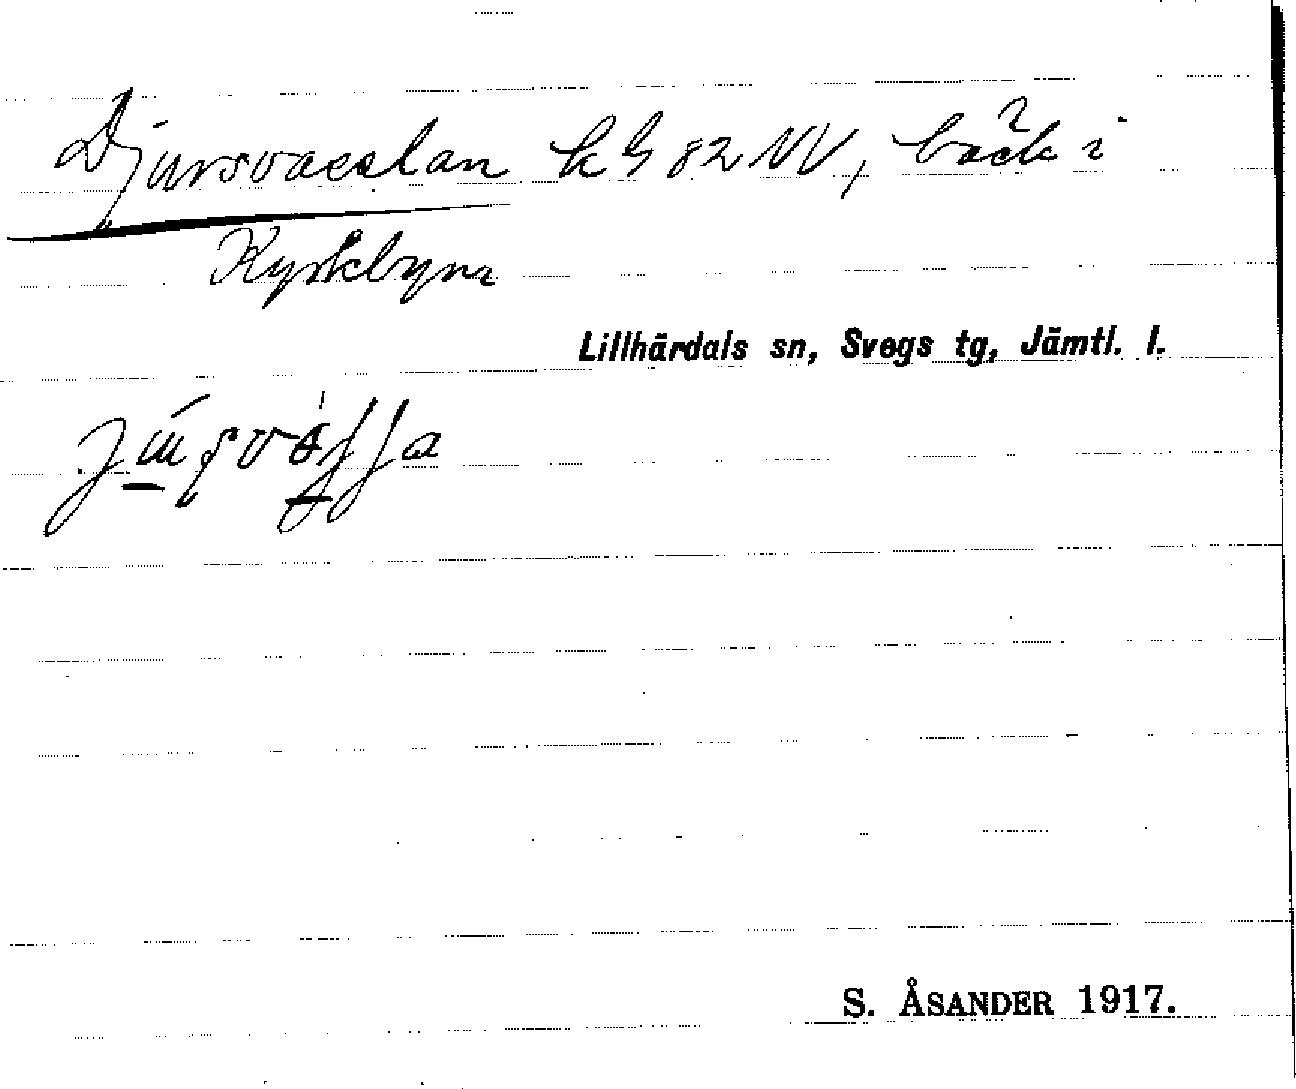 Djursvasslan kG 82 NV, bäck i
Kyrkbyn
Lillhärdals sn, Svegs tg, Jämtl. l.
S. ÅSANDER 1917.